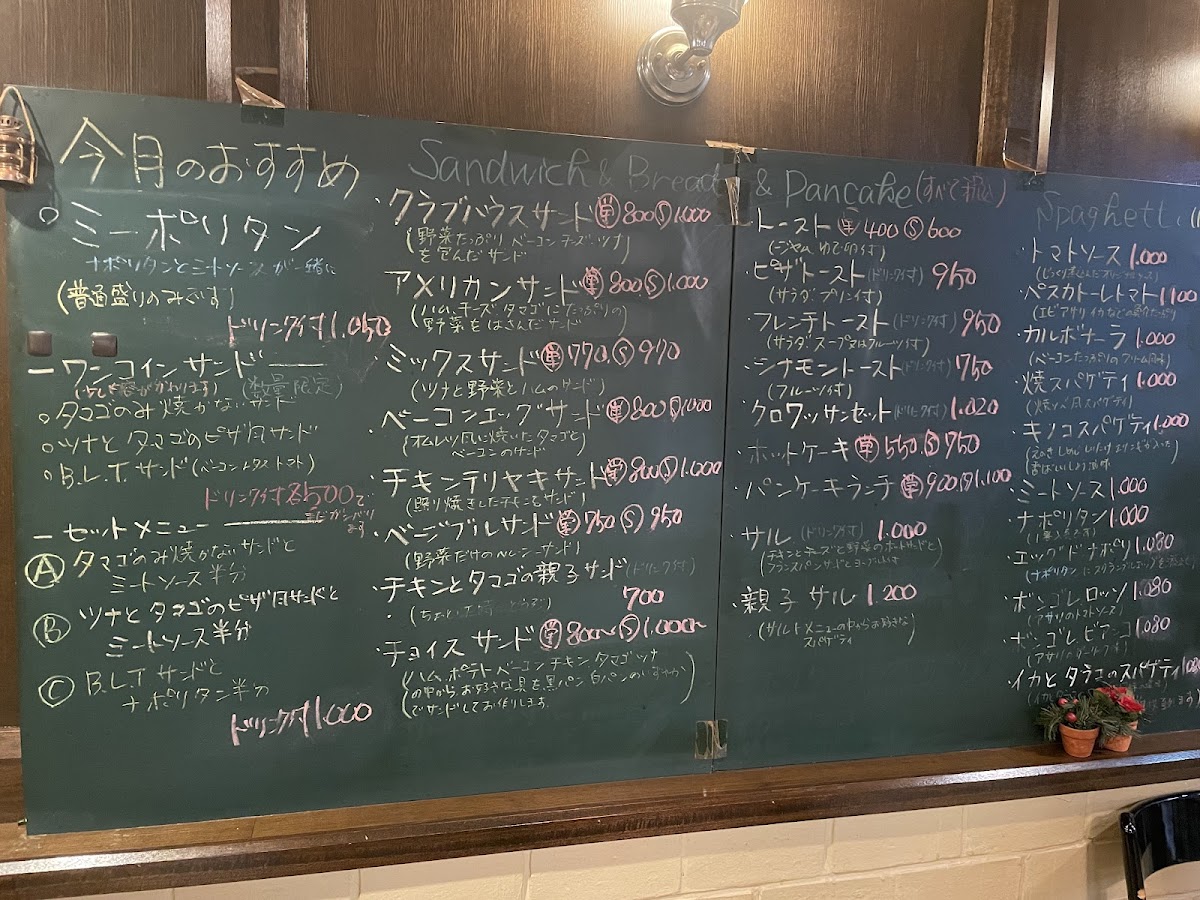 今月のおすすめ
○ミーポリタン
ナポリタンとミートソースが一緒に
(普通盛りのみです)
ドリンク付 1.050
ーワンコインサンド ー
(数量限定)
○タマゴのみ焼かないサンド
○ツナとタマゴのピザ風サンド
○B.L.Tサンド(ベーコンレタストマト)
ドリンク付 各500で
ーセットメニュー ー
Ⓐタマゴのみ焼かないサンドと
ミートソース半分
Ⓑツナとタマゴのピザ風サンドと
ミートソース半分
ⒸB.L.Tサンドと
ナポリタン半分
ドリンク付 1.000
Sandwich & Bread & Pancake (すべて税込)
・クラブハウスサンド ㊥800 Ⓢ1.000
(野菜たっぷり ベーコン チーズ ツナ
を包んだサンド
・アメリカンサンド ㊥800 Ⓢ1.000
(ハム、チーズ、タマゴにたっぷりの
野菜をはさんだサンド
・ミックスサンド ㊥770 Ⓢ970
(ツナと野菜とハムのサンド)
・ベーコンエッグサンド ㊥800 Ⓢ1.000
(オムレツ風に焼いたタマゴと
ベーコンのサンド
・チキンテリヤキサンド ㊥800 Ⓢ1.000
(照り焼きしたチキンのサンド)
・ベジブルサンド ㊥750 Ⓢ950
(野菜だけのヘルシーサンド)
・チキンとタマゴの親子サンド(ドリンク付)
700
・チョイスサンド ㊥800〜 Ⓢ1.000〜
(ハム、ポテト、ベーコン、チキン、タマゴ、ツナ
の中からお好きな具を黒パン白パンのいずれか
でサンドしてお作りします.
・トースト ㊥400 Ⓢ600
(ジャム、ゆで卵付)
・ピザトースト(ドリンク付) 950
(サラダ、プリン付)
・フレンチトースト(ドリンク付) 950
(サラダ、スープ又はフルーツ付)
・シナモントースト(ドリンク付) 750
(フルーツ付)
・クロワッサンセット(ドリンク付) 1.020
・ホットケーキ ㊥550 Ⓢ750
・パンケーキランチ ㊥900 Ⓢ1.100
・サル(ドリンク付) 1.000
・親子サル 1.200
スパゲティ
Spaghetti
・トマトソース 1.000
・ペスカトーレトマト 1100
・カルボナーラ 1.000
(ベーコンたっぷりのクリーム風味)
・焼スパゲティ 1.000
(焼ソバ風スパゲティ)
・キノコスパゲティ 1.000
・ミートソース 1.000
・ナポリタン 1.000
・エッグドナポリ 1.080
・ボンゴレロッソ 1.080
(アサリのトマトソース)
・ボンゴレビアンコ 1.080
・イカとタラコのスパゲティ